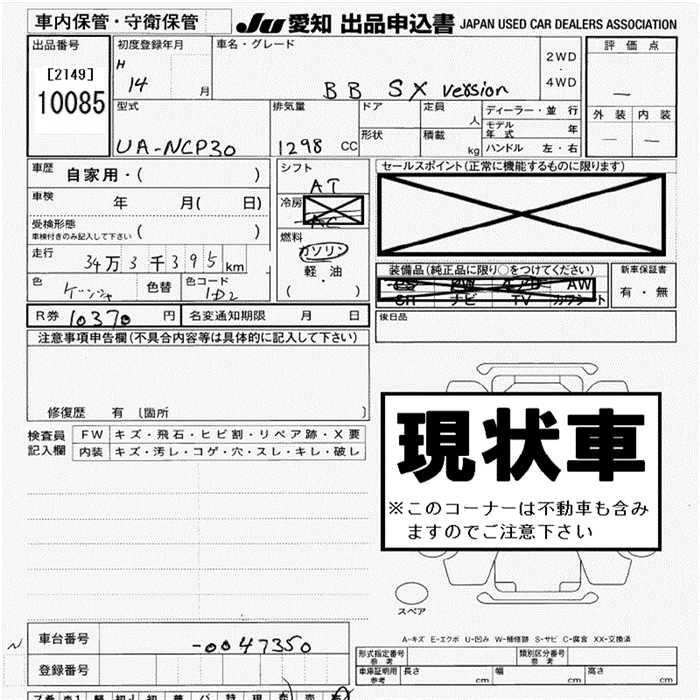 車内保管・守衛保管
JU 愛知 出品申込書 JAPAN USED CAR DEALERS ASSOCIATION
出品番号
[2149]
10085
初度登録年月
H 14 月
車名・グレード
BB SX version
2WD
・
4WD
評価点
外装 内装
型式
UA-NCP30
排気量
1298 CC
ドア
形状
定員
人
積載
kg
ディーラー・並 行
モデル年式 年
ハンドル 左・右
車歴 自家用・( )
車検 年 月( 日)
受検形態
車検付きのみ記入して下さい ( )
走行
34万3千395km
色
色替
色コード
シフト
AT
冷房
AC
燃料
ガソリン
軽・油
( )
セールスポイント(正常に機能するものに限ります)
装備品(純正品に限り○をつけてください)
PS PW AW
SR ナビ TV カワシート
新車保証書
有・無
後日品
R券 10370 円 名変通知期限 月 日
注意事項申告欄(不具合内容等は具体的に記入して下さい)
修復歴 有 [箇所 ]
検査員記入欄
FW キズ・飛石・ヒビ割・リペア跡・X要
内装 キズ・汚レ・コゲ・穴・スレ・キレ・破レ
現状車
※このコーナーは不動車も含み
ますのでご注意下さい
スペア
A-キズ E-エクボ U-凹み W-補修跡 S-サビ C-腐食 XX-交換済
N 車台番号 -0047350
登録番号
形式指定番号 参考
類別区分番号 参考
車庫証明用 参考
長さ cm
幅 cm
高さ cm